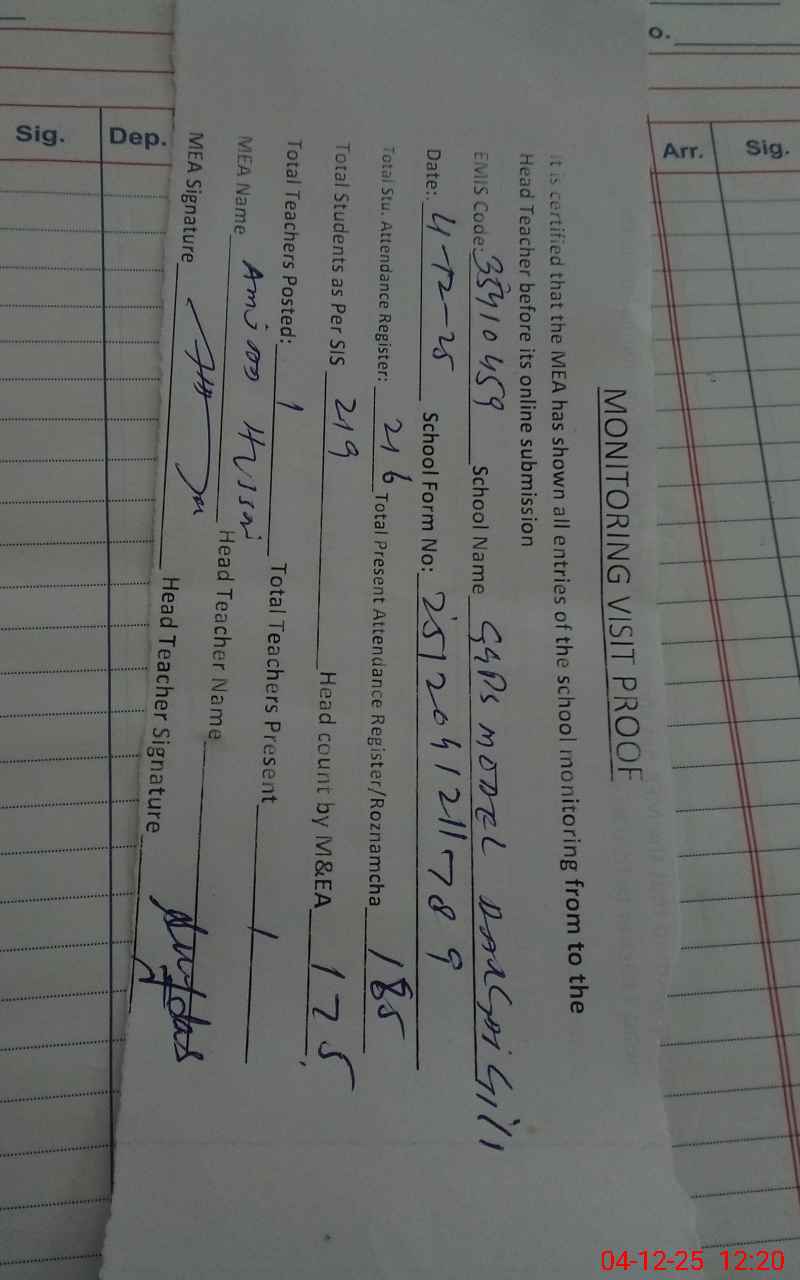 MONITORING VISIT PROOF
It is certified that the MEA has shown all entries of the school monitoring from to the
Head Teacher before its online submission
EMIS Code: 35410459 School Name GGPS MODEL
Date: 4-12-25 School Form No: 251204121789
Total Stu. Attendance Register: 216 Total Present Attendance Register/Roznamcha 185
Total Students as Per SIS 219 Head count by M&EA 175
Total Teachers Posted: 1 Total Teachers Present 1
MEA Name Head Teacher Name
MEA Signature Head Teacher Signature
Sig. Dep.
o.
Arr. Sig.
04-12-25 12:20